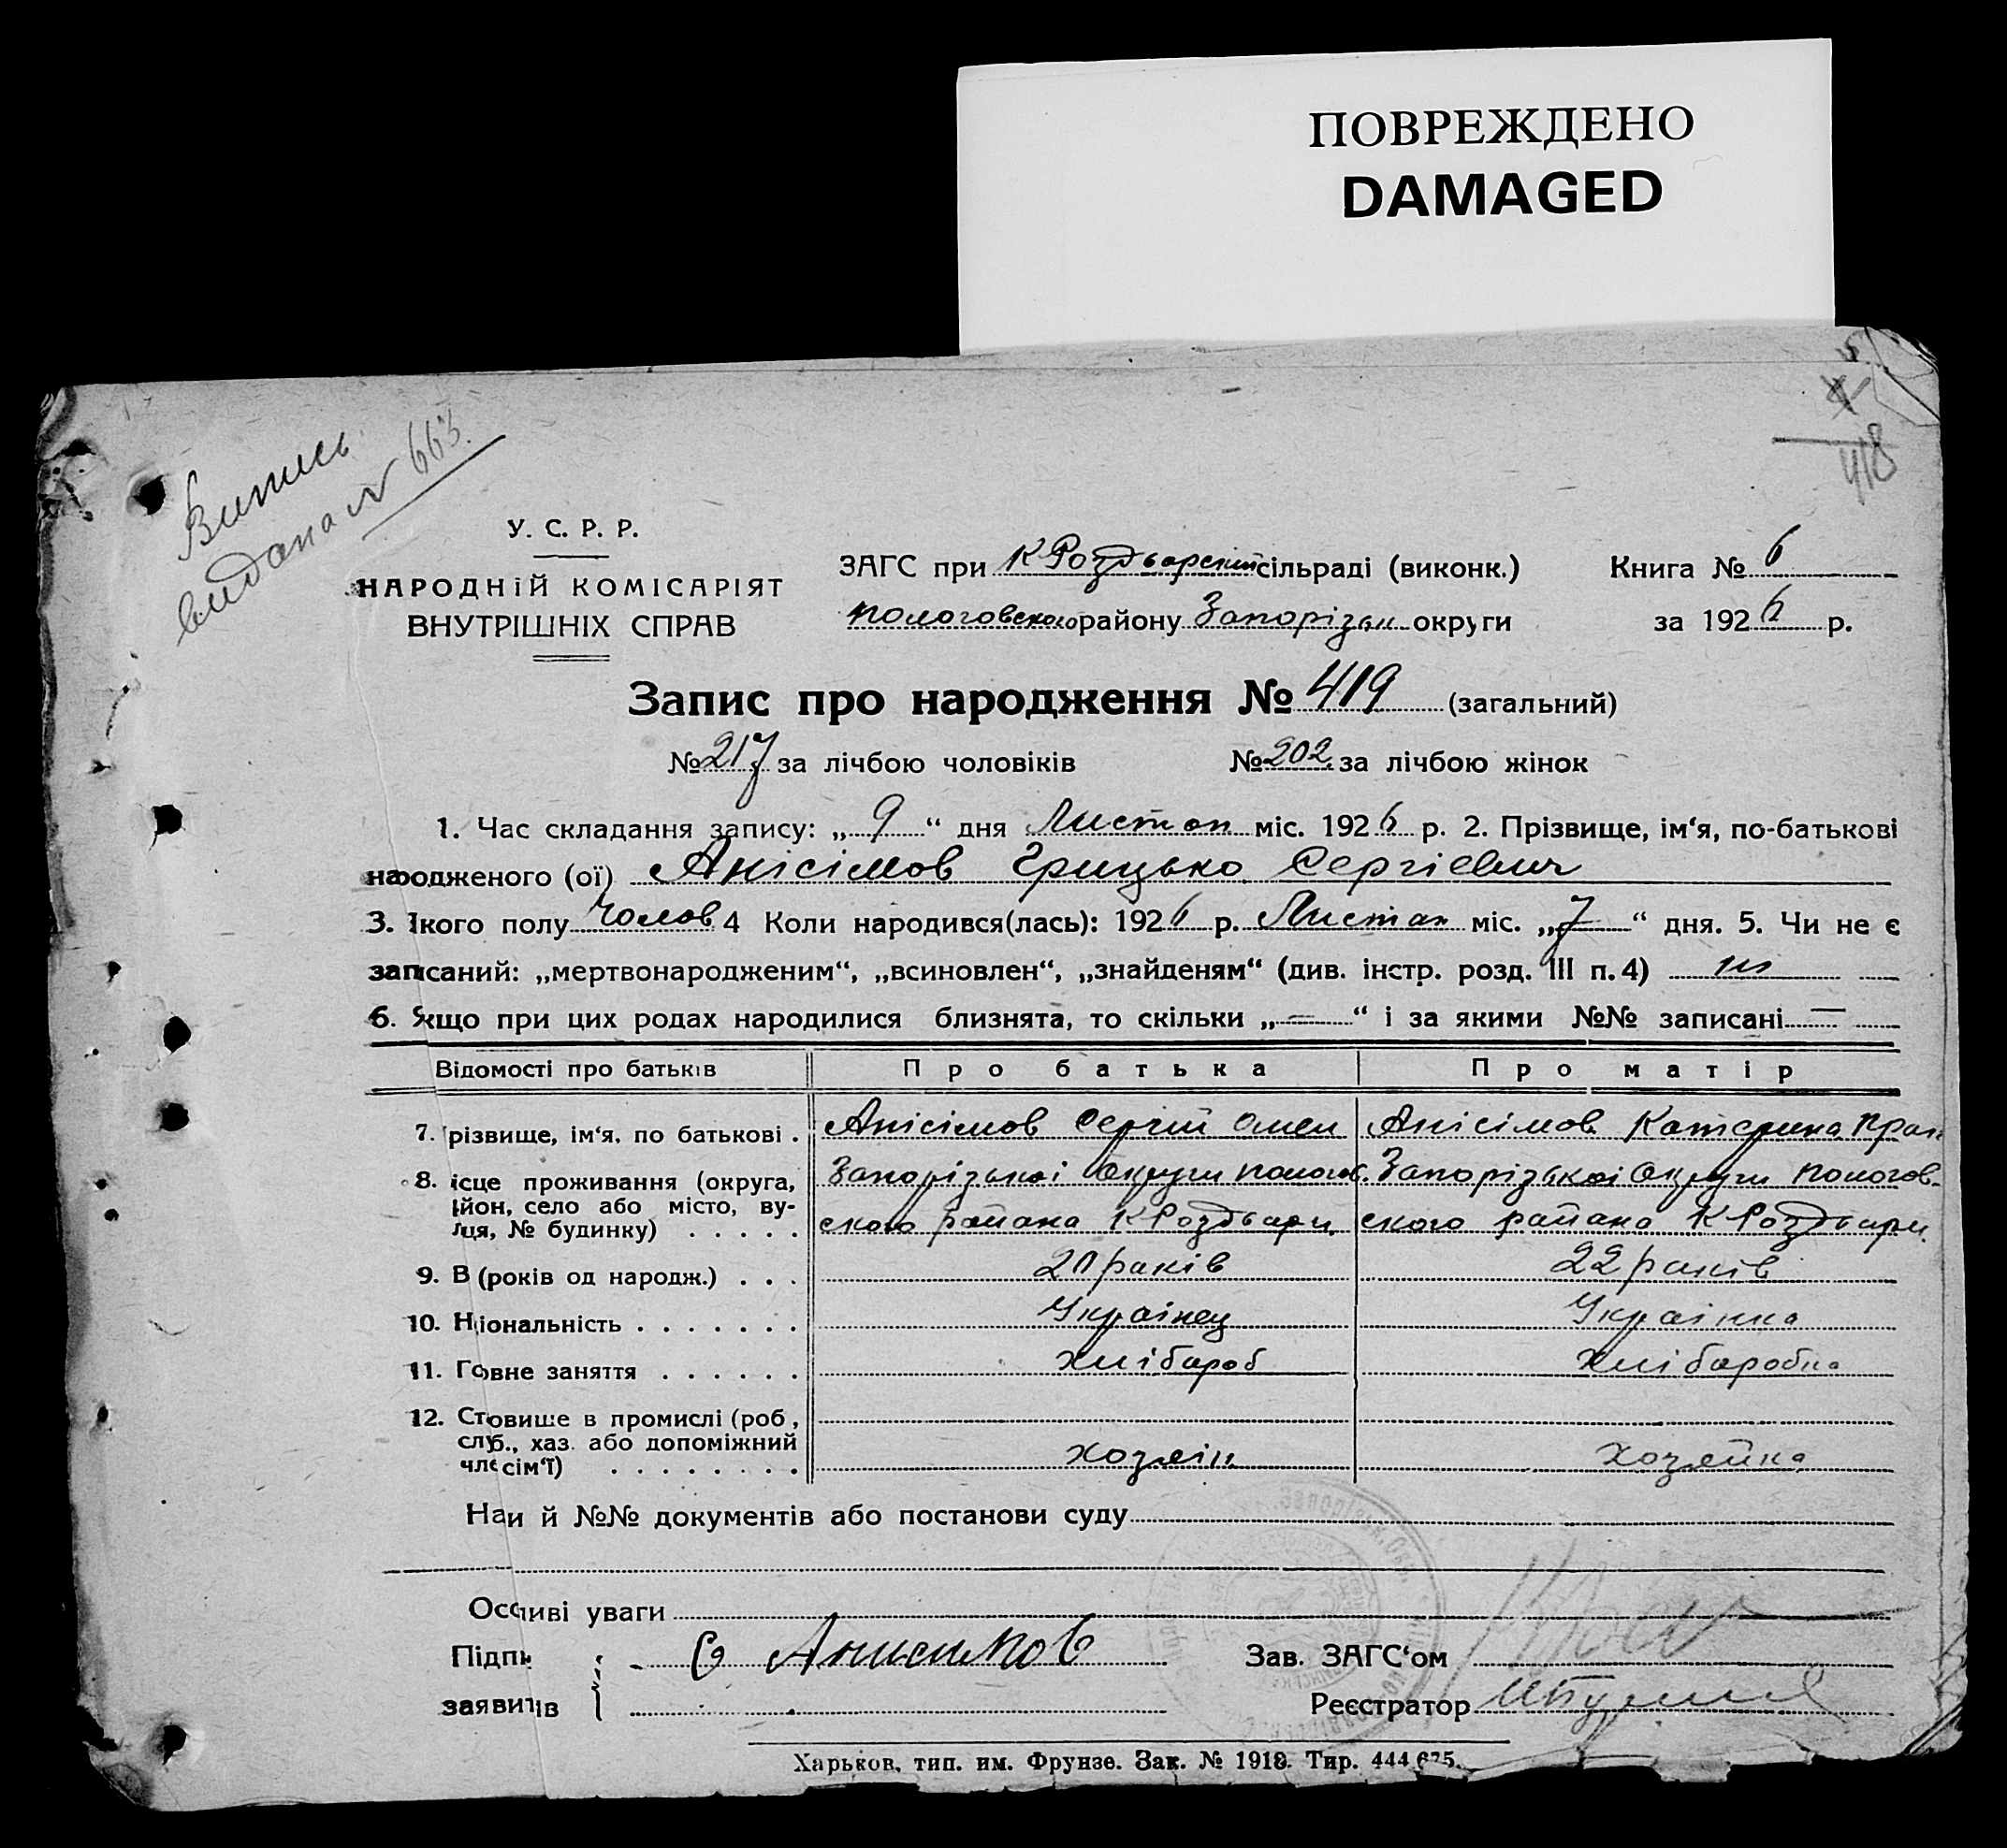 ПОВРЕЖДЕНО
DAMAGED
418
Випись
видана N 663.
У. С. Р. Р.
НАРОДНІЙ КОМІСАРІЯТ
ВНУТРІШНІХ СПРАВ
ЗАГС при КРоздорский сільраді (виконк.)
Пологовского району Запорізьк округи
Книга № 6
за 1926 р.
Запис про народження № 419 (загальний)
№ 217 за лічбою чоловіків № 202 за лічбою жінок
1. Час складання запису: „9“ дня Листоп міс. 1926 р. 2. Прізвище, ім‘я, по-батькові
народженого (ої) Анісімов Грицько Сергіевич
3. Якого полу Чолов 4 Коли народився(лась): 1926 р. Листоп міс. „7“ дня. 5. Чи не є
записаний: „мертвонародженим“, „всиновлен“, „знайденям“ (див. інстр. розд. III п. 4) ні
6. Якщо при цих родах народилися близнята, то скільки „—“ і за якими №№ записані —
Відомості про батьків Про батька Про матір
7. різвище, ім‘я, по батькові . Анісімов Сергій Омел Анісімов Катерина Прок
8. ісце проживання (округа, Запорізькоі Округи Пологов. Запорізькоі Округи Пологов-
йон, село або місто, ву-
ля, № будинку) . . . . . ского района КРоздори ского района КРоздори
9. В (років од народж.) . . . 20 раків 22 раків
10. Ніональність . . . . . . . Украінец Украінка
11. Говне заняття . . . . . . Хлібароб Хлібаробка
12. Стовище в промислі (роб,
слуб., хаз. або допоміжний
члє сім‘ї) . . . . . . . . Хозяін Хозяйка
Наи й №№ документів або постанови суду
Осчиві уваги
Підпи С Анисимов Зав. ЗАГС‘ом
заявитів Реєстратор
Харьков, тип. им. Фрунзе. Зак. № 1918. Тир. 444.675.